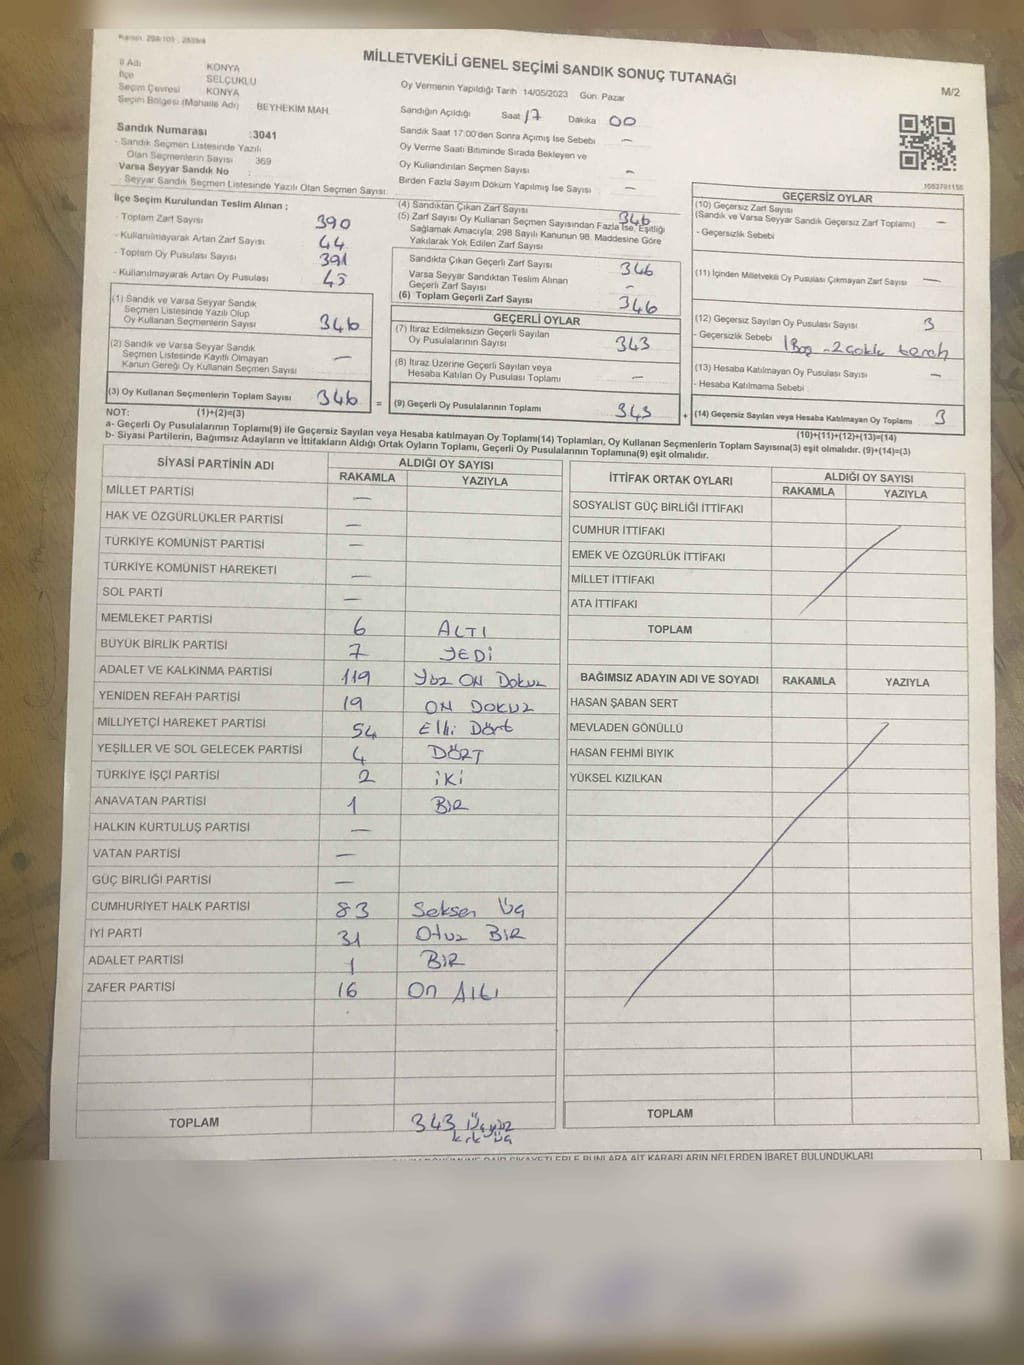 MİLLETVEKİLİ GENEL SEÇİMİ SANDIK SONUÇ TUTANAĞI
M/2
İl Adı KONYA
İlçe SELÇUKLU
Seçim Çevresi KONYA
Seçim Bölgesi (Mahalle Adı) BEYHEKİM MAH
Sandık Numarası :3041
- Sandık Seçmen Listesinde Yazılı
Olan Seçmenlerin Sayısı 369
Varsa Seyyar Sandık No :
- Seyyar Sandık Seçmen Listesinde Yazılı Olan Seçmen Sayısı:
Oy Vermenin Yapıldığı Tarih 14/05/2023 Gün: Pazar
Sandığın Açıldığı Saat 17 Dakika 00
Sandık Saat 17:00'den Sonra Açımış İse Sebebi —
Oy Verme Saati Bitiminde Sırada Bekleyen ve
Oy Kullandırılan Seçmen Sayısı —
Birden Fazla Sayım Döküm Yapılmış İse Sayısı —
1682791156
İlçe Seçim Kurulundan Teslim Alınan ;
- Toplam Zarf Sayısı 390
- Kullanılmayarak Artan Zarf Sayısı 44
- Toplam Oy Pusulası Sayısı 391
- Kullanılmayarak Artan Oy Pusulası 45
(1) Sandık ve Varsa Seyyar Sandık
Seçmen Listesinde Yazılı Olup
Oy Kullanan Seçmenlerin Sayısı 346
(2) Sandık ve Varsa Seyyar Sandık
Seçmen Listesinde Kayıtlı Olmayan
Kanun Gereği Oy Kullanan Seçmen Sayısı —
(3) Oy Kullanan Seçmenlerin Toplam Sayısı 346 =
(4) Sandıktan Çıkan Zarf Sayısı 346
(5) Zarf Sayısı Oy Kullanan Seçmen Sayısından Fazla İse, Eşitliği
Sağlamak Amacıyla; 298 Sayılı Kanunun 98. Maddesine Göre
Yakılarak Yok Edilen Zarf Sayısı
Sandıkta Çıkan Geçerli Zarf Sayısı 346
Varsa Seyyar Sandıktan Teslim Alınan
Geçerli Zarf Sayısı —
(6) Toplam Geçerli Zarf Sayısı 346
GEÇERLİ OYLAR
(7) İtiraz Edilmeksizin Geçerli Sayılan
Oy Pusulalarının Sayısı 343
(8) İtiraz Üzerine Geçerli Sayılan veya
Hesaba Katılan Oy Pusulası Toplamı —
(9) Geçerli Oy Pusulalarının Toplamı 343 +
GEÇERSİZ OYLAR
(10) Geçersiz Zarf Sayısı
(Sandık ve Varsa Seyyar Sandık Geçersiz Zarf Toplamı) —
- Geçersizlik Sebebi
(11) İçinden Milletvekili Oy Pusulası Çıkmayan Zarf Sayısı —
(12) Geçersiz Sayılan Oy Pusulası Sayısı 3
- Geçersizlik Sebebi : 1 Boş - 2 çoklu terch
(13) Hesaba Katılmayan Oy Pusulası Sayısı —
- Hesaba Katılmama Sebebi
(14) Geçersiz Sayılan veya Hesaba Katılmayan Oy Toplamı 3
NOT: (1)+(2)=(3)
(10)+(11)+(12)+(13)=(14)
a- Geçerli Oy Pusulalarının Toplamı(9) ile Geçersiz Sayılan veya Hesaba katılmayan Oy Toplamı(14) Toplamları, Oy Kullanan Seçmenlerin Toplam Sayısına(3) eşit olmalıdır. (9)+(14)=(3)
b- Siyasi Partilerin, Bağımsız Adayların ve İttifakların Aldığı Ortak Oyların Toplamı, Geçerli Oy Pusulalarının Toplamına(9) eşit olmalıdır.
SİYASİ PARTİNİN ADI ALDIĞI OY SAYISI
RAKAMLA YAZIYLA
MİLLET PARTİSİ —
HAK VE ÖZGÜRLÜKLER PARTİSİ —
TÜRKİYE KOMÜNİST PARTİSİ —
TÜRKİYE KOMÜNİST HAREKETİ —
SOL PARTİ —
MEMLEKET PARTİSİ 6 ALTI
BÜYÜK BİRLİK PARTİSİ 7 YEDİ
ADALET VE KALKINMA PARTİSİ 119 Yüz ON DOKUZ
YENİDEN REFAH PARTİSİ 19 ON DOKUZ
MİLLİYETÇİ HAREKET PARTİSİ 54 Elli Dört
YEŞİLLER VE SOL GELECEK PARTİSİ 4 DÖRT
TÜRKİYE İŞÇİ PARTİSİ 2 İKİ
ANAVATAN PARTİSİ 1 BİR
HALKIN KURTULUŞ PARTİSİ —
VATAN PARTİSİ —
GÜÇ BİRLİĞİ PARTİSİ —
CUMHURİYET HALK PARTİSİ 83 Seksen Üç
İYİ PARTİ 31 Otuz BİR
ADALET PARTİSİ 1 BİR
ZAFER PARTİSİ 16 On Altı
TOPLAM 343 Üçyüz
kırk üç
İTTİFAK ORTAK OYLARI ALDIĞI OY SAYISI
RAKAMLA YAZIYLA
SOSYALİST GÜÇ BİRLİĞİ İTTİFAKI
CUMHUR İTTİFAKI
EMEK VE ÖZGÜRLÜK İTTİFAKI
MİLLET İTTİFAKI
ATA İTTİFAKI
TOPLAM
BAĞIMSIZ ADAYIN ADI VE SOYADI RAKAMLA YAZIYLA
HASAN ŞABAN SERT
MEVLADEN GÖNÜLLÜ
HASAN FEHMİ BIYIK
YÜKSEL KIZILKAN
TOPLAM
ŞİKAYETLERLE BUNLARA AİT KARARLARIN NELERDEN İBARET BULUNDUKLARI